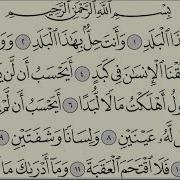 بِسْمِ ٱللَّهِ ٱلرَّحْمَٰنِ ٱلرَّحِيمِ
ذَا ٱلْبَلَدِ ١ وَأَنتَ حِلٌّۢ بِهَٰذَا ٱلْبَلَدِ ٢ وَوَ
قْنَا ٱلْإِنسَٰنَ فِى كَبَدٍ ٤ أَيَحْسَبُ أَن لَّن
ولُ أَهْلَكْتُ مَالًا لُّبَدًا ٦ أَيَحْسَبُ أَن لَّمْ
لَّهُۥ عَيْنَيْنِ ٨ وَلِسَانًا وَشَفَتَيْنِ ٩
١٠ فَلَا ٱقْتَحَمَ ٱلْعَقَبَةَ ١١ وَمَآ أَدْرَىٰكَ مَا